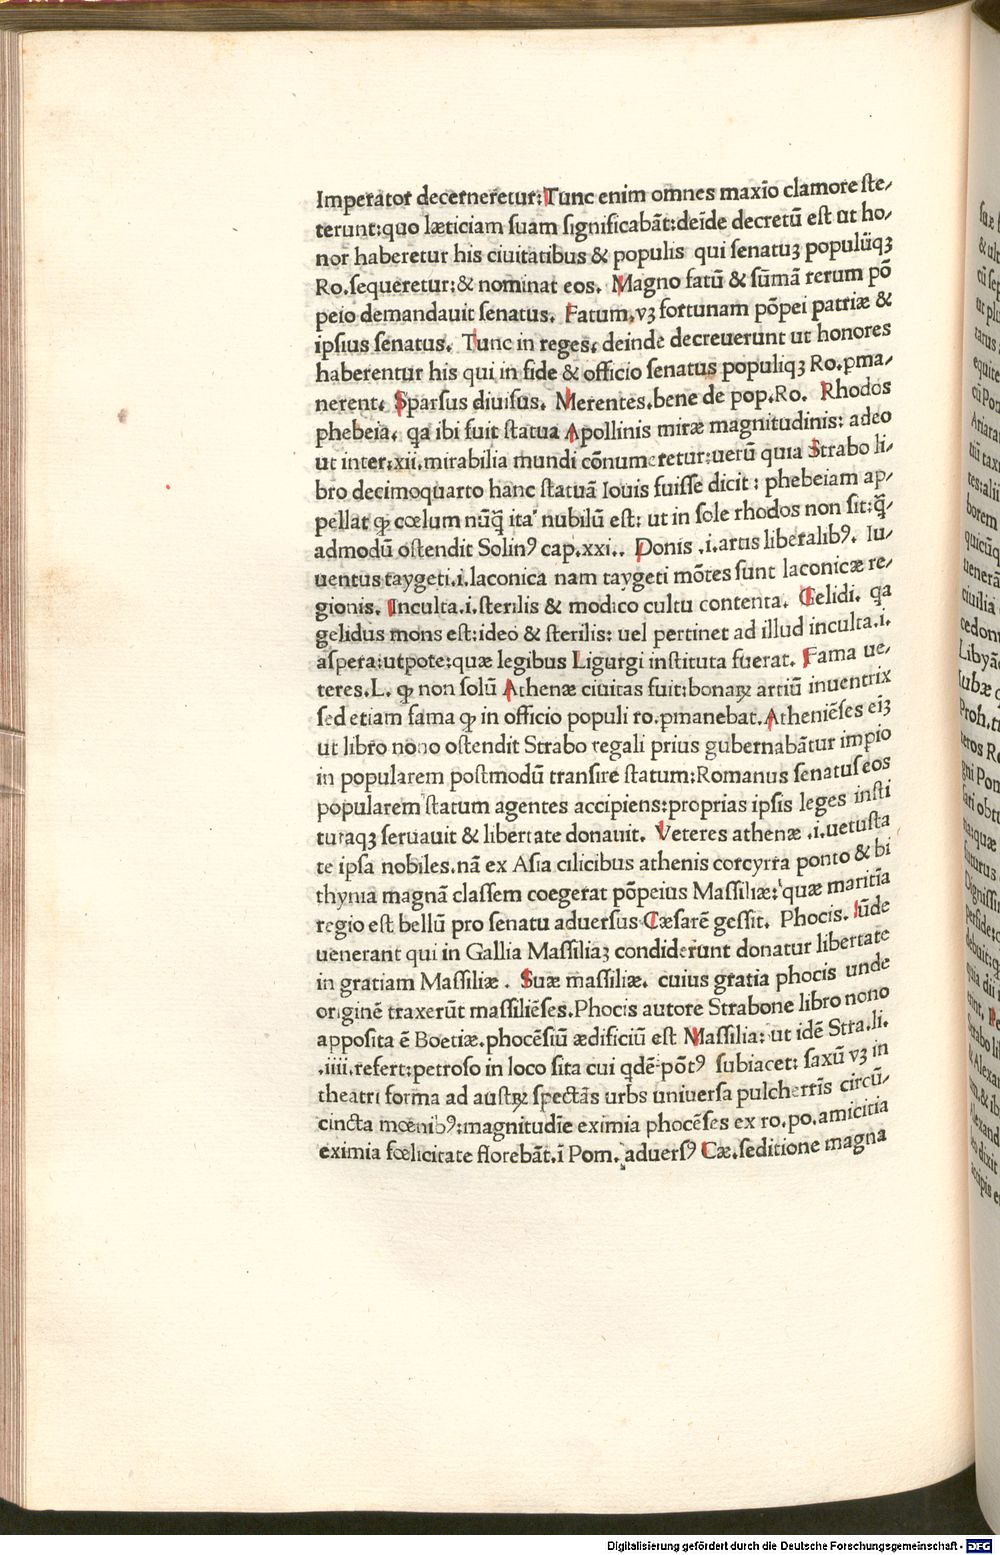 Imperator decerneretur: Tunc enim omnes maxīo clamore ſte⸗
terunt: quo læticiam ſuam ſignificabāt: deīde decretū eſt ut ho⸗
nor haberetur his ciuitatibus & populis qui ſenatuꝫ populūqꝫ
Ro. ſequeretur: & nominat eos. Magno fatū & ſūmā rerum pō
peio demandauit ſenatus. Fatum, vꝫ fortunam pōpei patriæ &
ipſius ſenatus. Tunc in reges, deinde decreuerunt ut honores
haberentur his qui in fide & officio ſenatus populiqꝫ Ro. ꝑma⸗
nerent. Sparſus diuiſus. Merentes. bene de pop. Ro. Rhodos
phebeia. qa ibi fuit ſtatua Apollinis miræ magnitudinis: adeo
ut inter. xii. mirabilia mundi cōnumeretur: uerū quia Strabo li⸗
bro decimoquarto hanc ſtatuā Iouis fuiſſe dicit: phebeiam ap⸗
pellat ꝙ cœlum nūq̄ ita nubilū eſt: ut in ſole rhodos non ſit: q̄⸗
admodū oſtendit Solinꝰ cap. xxi.. Donis .i. artis liberalibꝰ. Iu⸗
uentus taygeti. i. laconica nam taygeti mōtes ſunt laconicæ re⸗
gionis. Inculta. i. ſterilis & modico cultu contenta. Gelidi. qa
gelidus mons eſt: ideo & ſterilis: uel pertinet ad illud inculta. i.
aſpera: utpote: quæ legibus Ligurgi inſtituta fuerat. Fama ue⸗
teres. L. ꝙ non ſolū Athenæ ciuitas fuit: bonaꝝ artiū inuentrix
ſed etiam fama ꝙ in officio populi ro. ꝑmanebat. Atheniēſes eīꝫ
ut libro nono oſtendit Strabo regali prius gubernabātur impio
in popularem poſtmodū tranſire ſtatum: Romanus ſenatuſ eos
popularem ſtatum agentes accipiens: proprias ipſis leges inſti
tutaqꝫ ſeruauit & libertate donauit. Veteres athenæ .i. uetuſta
te ipſa nobiles. nā ex Aſia cilicibus athenis corcyrra ponto & bi
thynia magnā claſſem coegerat pōpeius Maſſiliæ: quæ maritīa
regio eſt bellū pro ſenatu aduerſus Cæſarē geſſit. Phocis. Iūde
uenerant qui in Gallia Maſſiliaꝫ condiderunt donatur libertate
in gratiam Maſſiliæ . Suæ maſſiliæ. cuius gratia phocis unde
originē traxerūt maſſiliēſes. Phocis autore Strabone libro nono
appoſita ē Boetiæ. phocēſiū ædificiū eſt Maſſilia: ut idē Stra. li.
.iiii. refert: petroſo in loco ſita cui qdē pōtꝰ ſubiacet: ſaxū vꝫ in
theatri forma ad auſtꝝ ſpectās urbs uniuerſa pulcherrīs circū⸗
cincta mœnibꝰ: magnitudīe eximia phocēſes ex ro. po. amicitia
eximia fœlicitate florebāt. ī Pom. aduerſꝰ Cæ. ſeditione magna
Digitalisierung gefördert durch die Deutsche Forschungsgemeinschaft - DFG